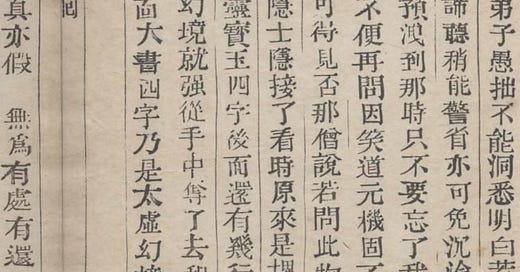 弟子愚拙不能洞悉明白若
諦聽稍能警省亦可免沉淪
預洩到那時只不要忘了我
不便再問因笑道元機固不
可得見否那僧說若問此物
隱士隱接了看時原來是塊
靈寶玉四字後面還有幾行
幻境就强從手中奪了去
面大書四字乃是太虛幻境
真亦假 無爲有處有還